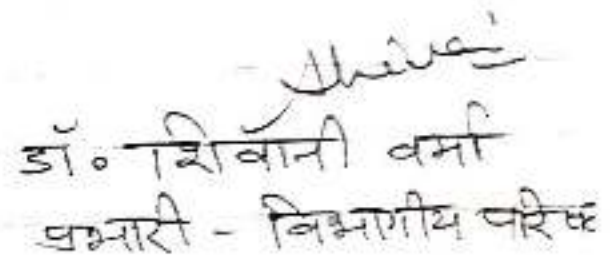 Shivani
डॉ० शिवॉनी वर्मा
प्रभारी - विभागीय परिषद